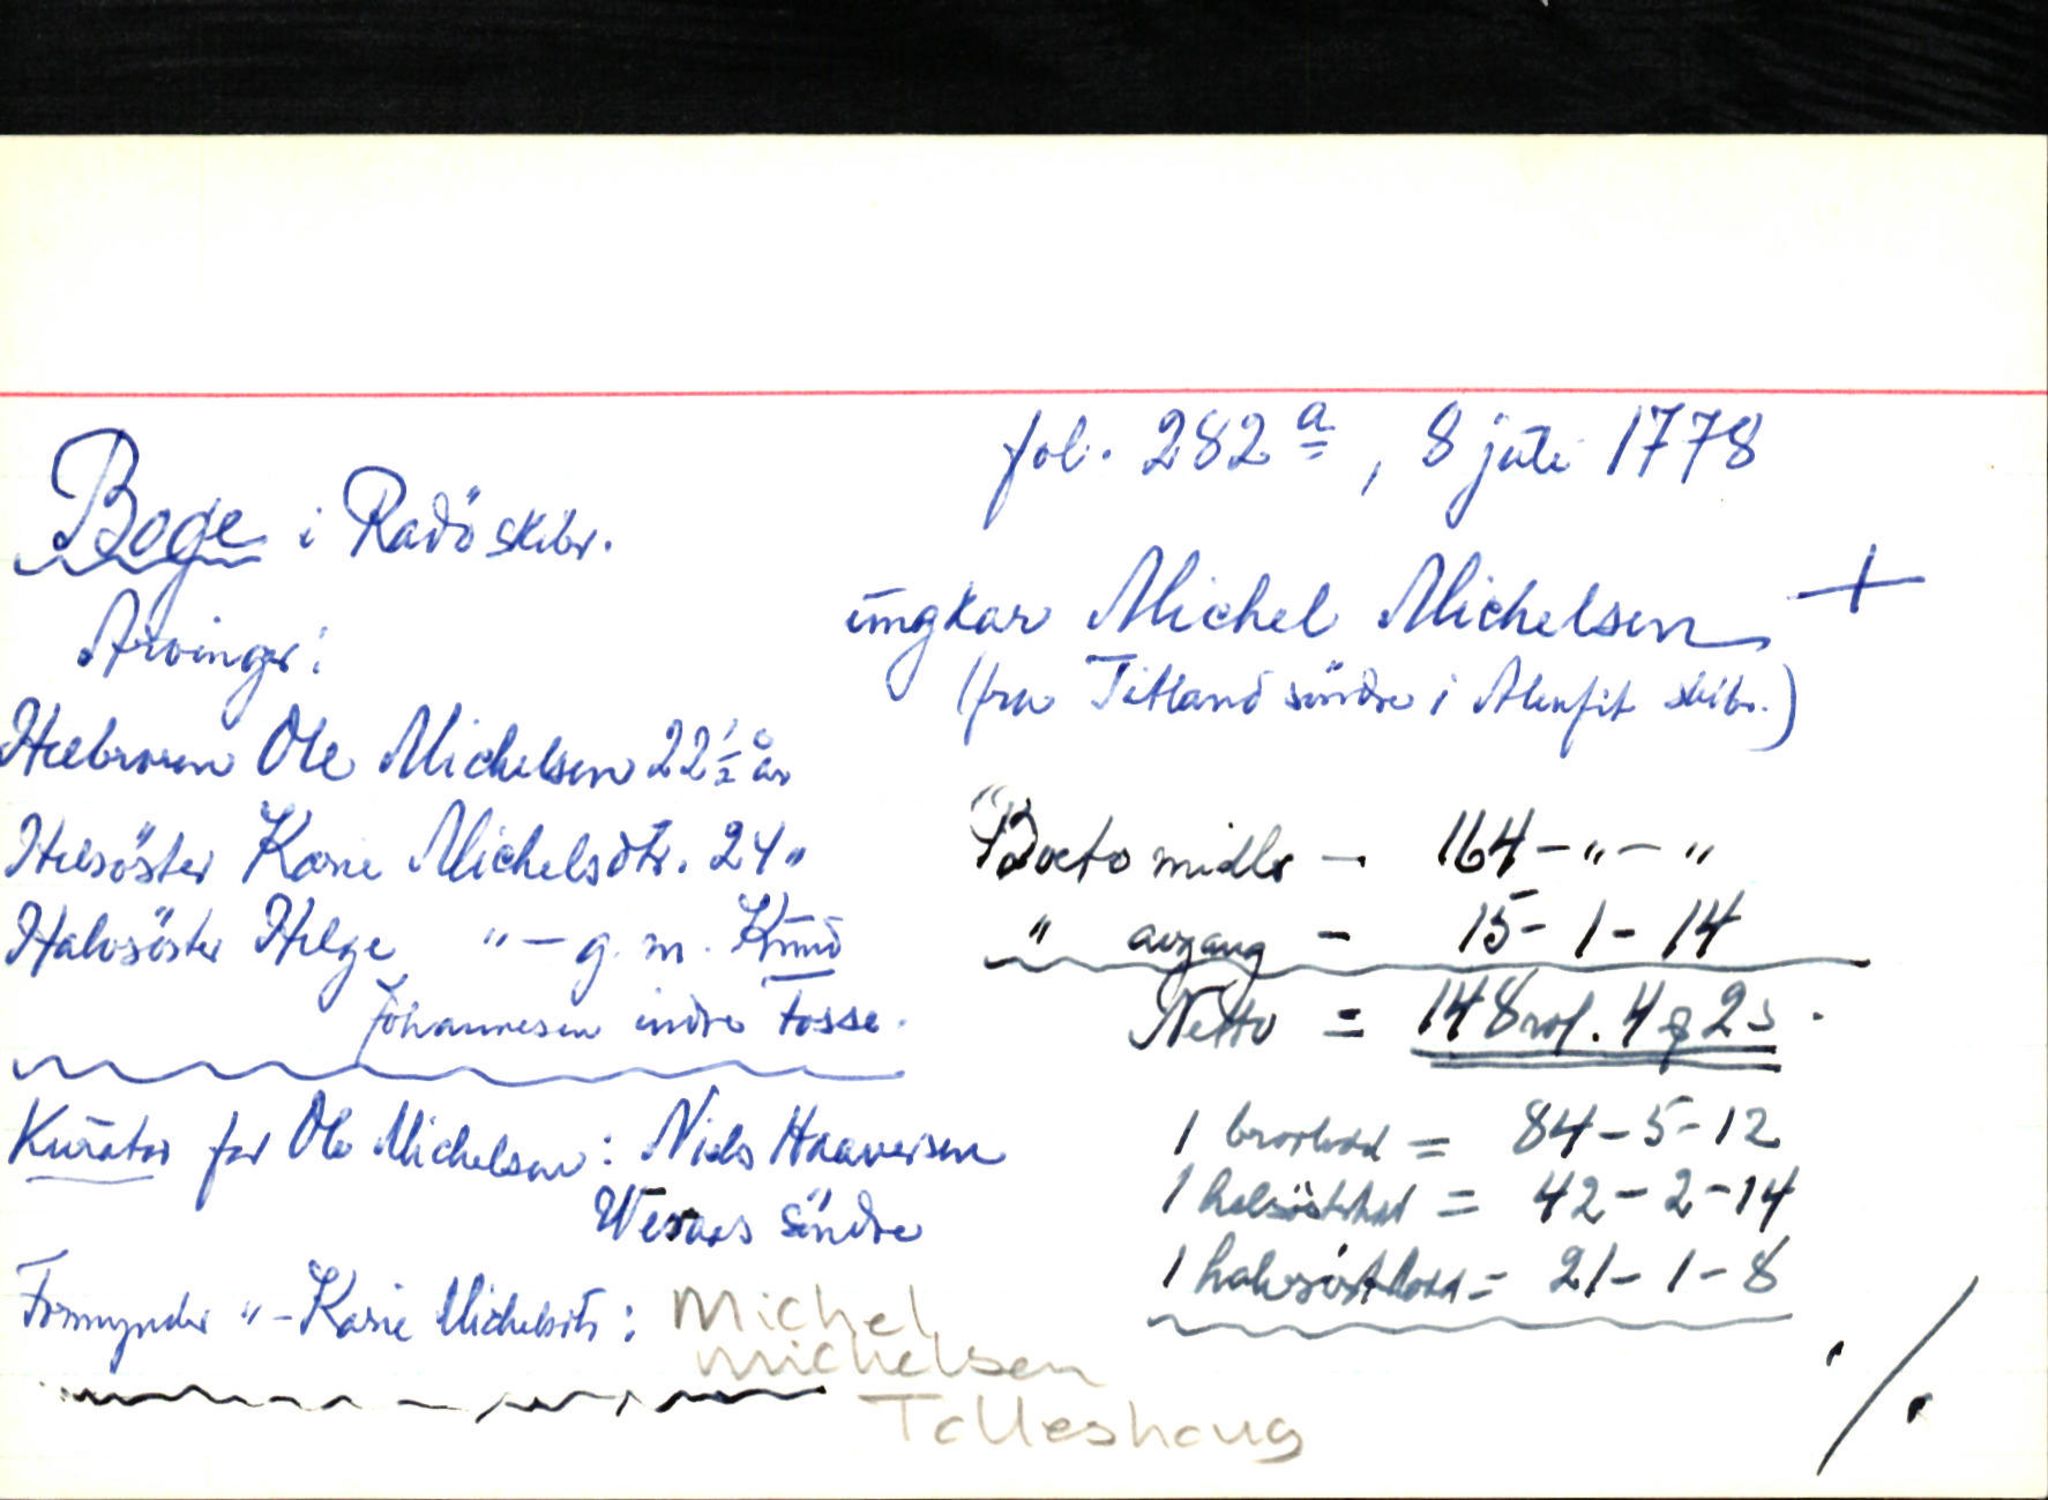 fol. 282 a, 8 juli 1778
Boge i Radö skibr.
ungkar Michel Michelsen +
(fra Titland söndre i Alenfit skibr.)
Arvinger:
Helbroren Ole Michelsen 22 1/2 år
Helsöster Karie Michelsdtr. 24 "
Halvsöster Helge " — g. m. Knud
Johannesen indre Fosse.
Boets midler — 164 - " - "
" avgang — 15 - 1 - 14
Netto = 148 rdl. 4 ƒ 2 s.
1 brorlodd = 84 - 5 - 12
1 helsösterlod = 42 - 2 - 14
1 halvsösterlodd = 21 - 1 - 8
Kurator for Ole Michelsen: Niels Haaversen
Wesaas söndre
Formynder " - Karie Michelsdtr:
Michel
Michelsen
Talleshaug
./.